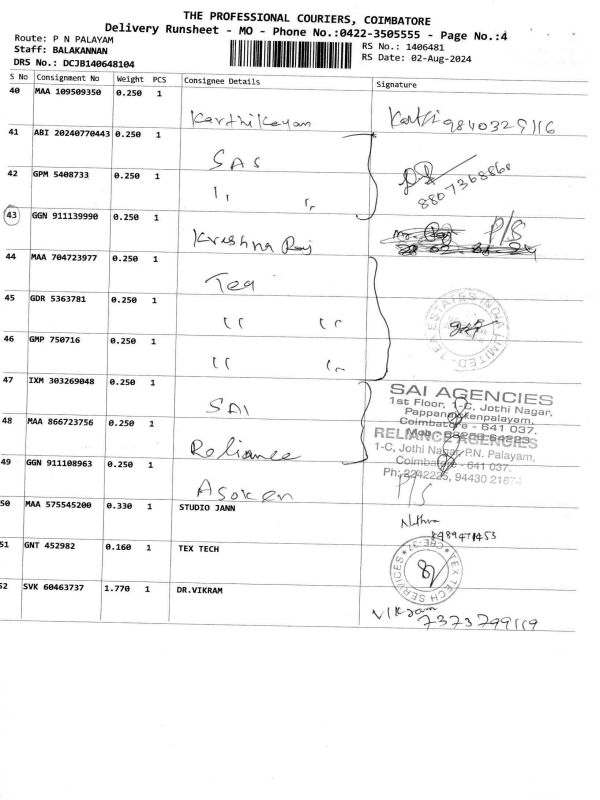 THE PROFESSIONAL COURIERS, COIMBATORE
Delivery Runsheet - MO - Phone No.:0422-3505555 - Page No.:4
Route: P N PALAYAM
Staff: BALAKANNAN
DRS No.: DCJB140648104
RS No.: 1406481
RS Date: 02-Aug-2024
S No Consignment No Weight PCS Consignee Details Signature
40 MAA 109509350 0.250 1
Karthikeyan 9840329116
41 ABI 20240770443 0.250 1
SAS
42 GPM 5408733 0.250 1
ıı ıı 8807368860
43 GGN 911139990 0.250 1
Krishna Raj P/S
44 MAA 704723977 0.250 1
Tea
45 GDR 5363781 0.250 1
ıı ıı
TEA ESTATES INDIA LIMITED
46 GMP 750716 0.250 1
ıı ıı
47 IXM 303269048 0.250 1
SAI
SAI AGENCIES
1st Floor, 1-C, Jothi Nagar,
Pappanaickenpalayam,
Coimbatore - 641 037.
48 MAA 866723756 0.250 1
Reliance
RELIANCE AGENCIES
1-C, Jothi Nagar P.N. Palayam,
Coimbatore - 641 037.
Ph: 2242225, 94430 21874
49 GGN 911108963 0.250 1
Asoken P/S
50 MAA 575545200 0.330 1 STUDIO JANN
Nithra
51 GNT 452982 0.160 1 TEX TECH
TEX TECH SERVICES CBE-37
52 SVK 60463737 1.770 1 DR.VIKRAM
Vikram
7373799119